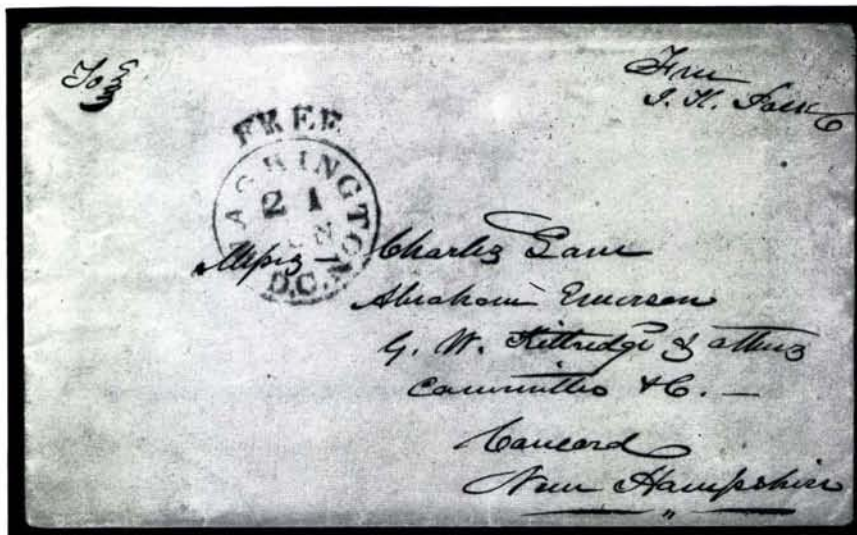 To
Free
J. K. Polk
FREE
WASHINGTON
21
D.C.
Messrs — Charles Lane
Abraham Emerson
G. W. Kittredge & others
Committee &C. —
Concord
New Hampshire